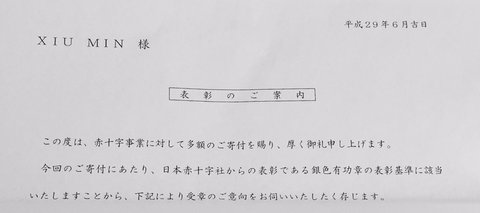 平成29年6月吉日
XIU MIN 様
表彰のご案内
この度は、赤十字事業に対して多額のご寄付を賜り、厚く御礼申し上げます。
今回のご寄付にあたり、日本赤十字社からの表彰である銀色有功章の表彰基準に該当
いたしますことから、下記により受章のご意向をお伺いいたしたく存じます。